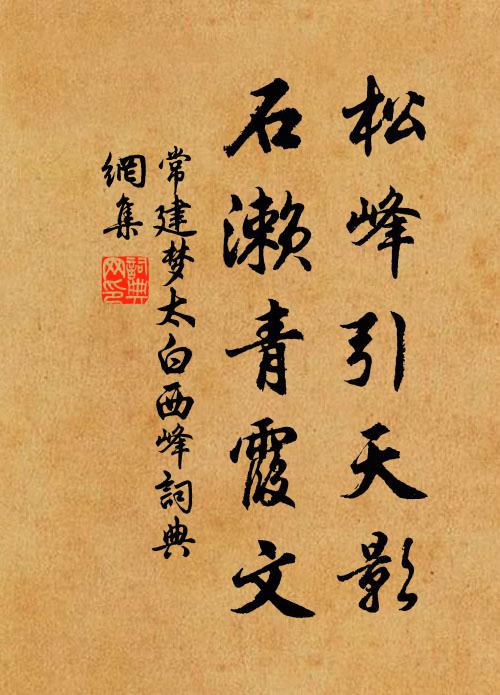 松峰引天影
石濑青霞文
常建梦太白西峰詞典
網集
詞典
网印